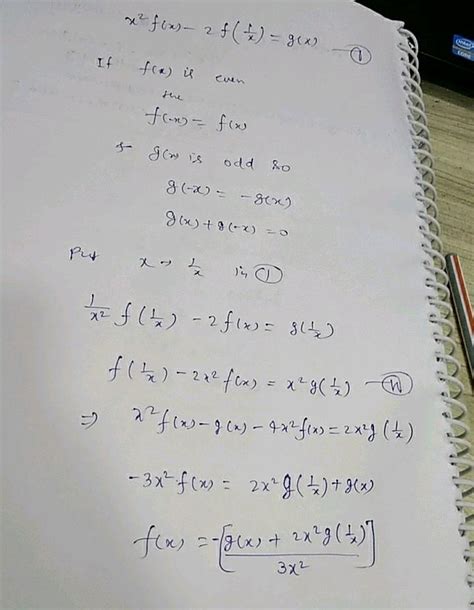 x² f(x) - 2 f(1/x) = g(x) - ①
If f(x) is even
the
f(-x) = f(x)
g(x) is odd so
g(-x) = -g(x)
g(x) + g(-x) = 0
Put x → 1/x in ①
1/x² f(1/x) - 2f(x) = g(1/x)
f(1/x) - 2x² f(x) = x² g(1/x) -
⇒ x² f(x) - g(x) - 4x² f(x) = 2x² g(1/x)
-3x² f(x) = 2x² g(1/x) + g(x)
f(x) = -[(g(x) + 2x² g(1/x))/3x²]